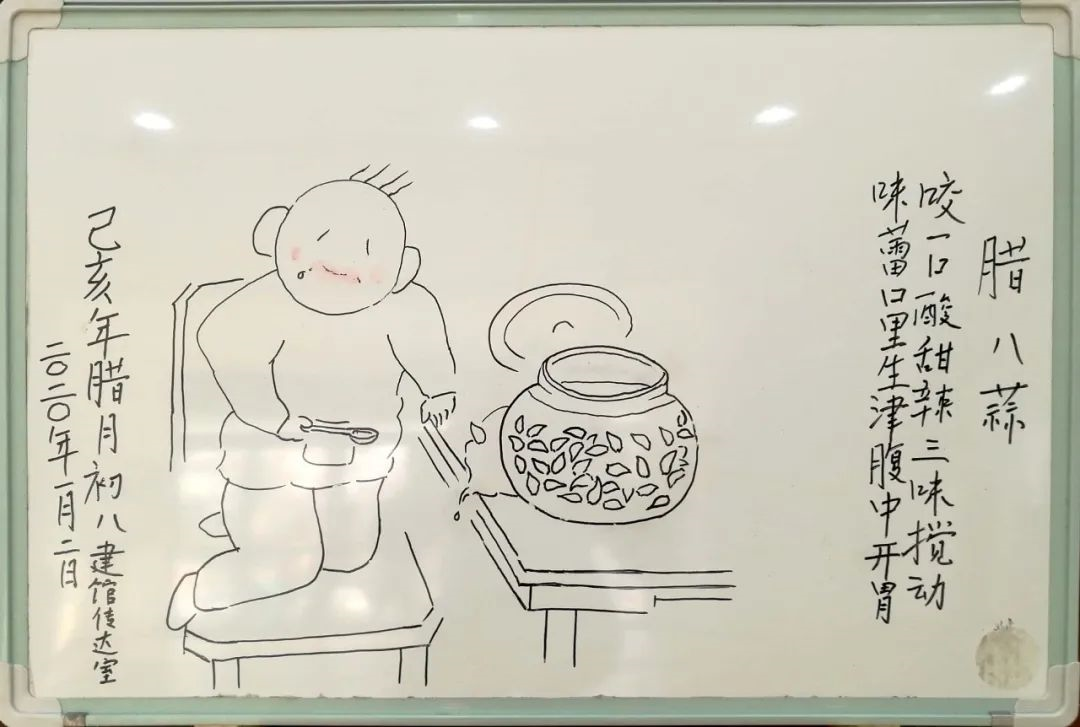 腊八蒜
咬一口酸甜辣三味搅动
味蕾口里生津腹中开胃
己亥年腊月初八建馆传达室
二〇二〇年一月二日